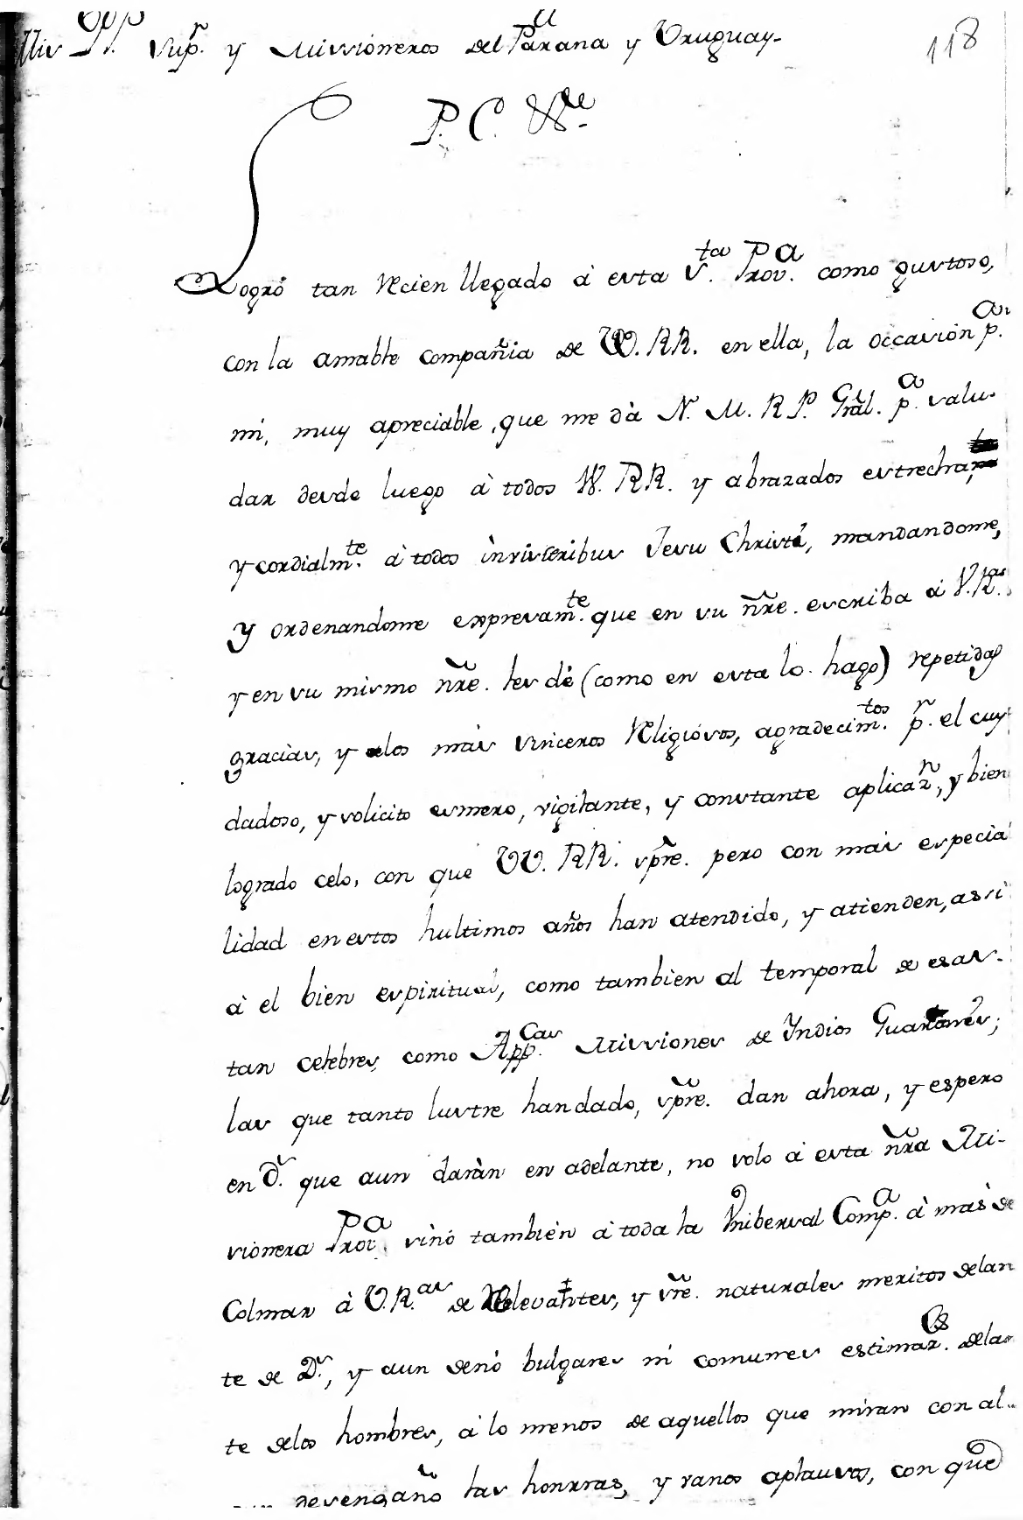 Mis PP. Sup.r y Missioneros del Paraná y Uruguay-
118
P. C. &.de
Logró tan recien llegado á esta S.ta Prov.a como gustoso,
con la amable compañia de VV. RR. en ella, la occasión p.a
mi, muy apreciable, que me dà N. M. R. P. Gral. p.a salu-
dar desde luego à todos VV. RR. y abrazados estrecha,
y cordialm.te à todos in visceribus Jesu Christi, mandandome,
y ordenandome expresam.te que en su nr̃e. escriba á V.R.as
y en su mismo nr̃e. les dé (como en esta lo hago) repetidas
gracias, y a los màs sinceros Religiósos, agradecim.tos p.r el cuy
dadoso, y solicito esmero, vigilante, y constante aplicaz.n, y bien
logrado celo, con que VV. RR. spr̃e. pero con màs especia
lidad en estos hultimos años han atendido, y atienden, assi
á el bien espiritual, como tambien al temporal de esas
tan celebres como App.cas Missiones de Yndios Guaranies;
las que tanto lustre han dado, spr̃e. dan ahora, y espero
en D.s que aun daràn en adelante, no solo á esta nr̃a Mi-
sionera Prov.a sinó tambien à toda la Vnibersal Comp.a à mas de
Colmar à V.R.as de Relevantes, y sr̃e. naturales meritos delan
te de D.s, y aun denó bulgares ni comunes estimaz.es delan
te delos hombres, á lo menos de aquellos que miran con al..
desengaño las honrras, y vanos aplausos, con que